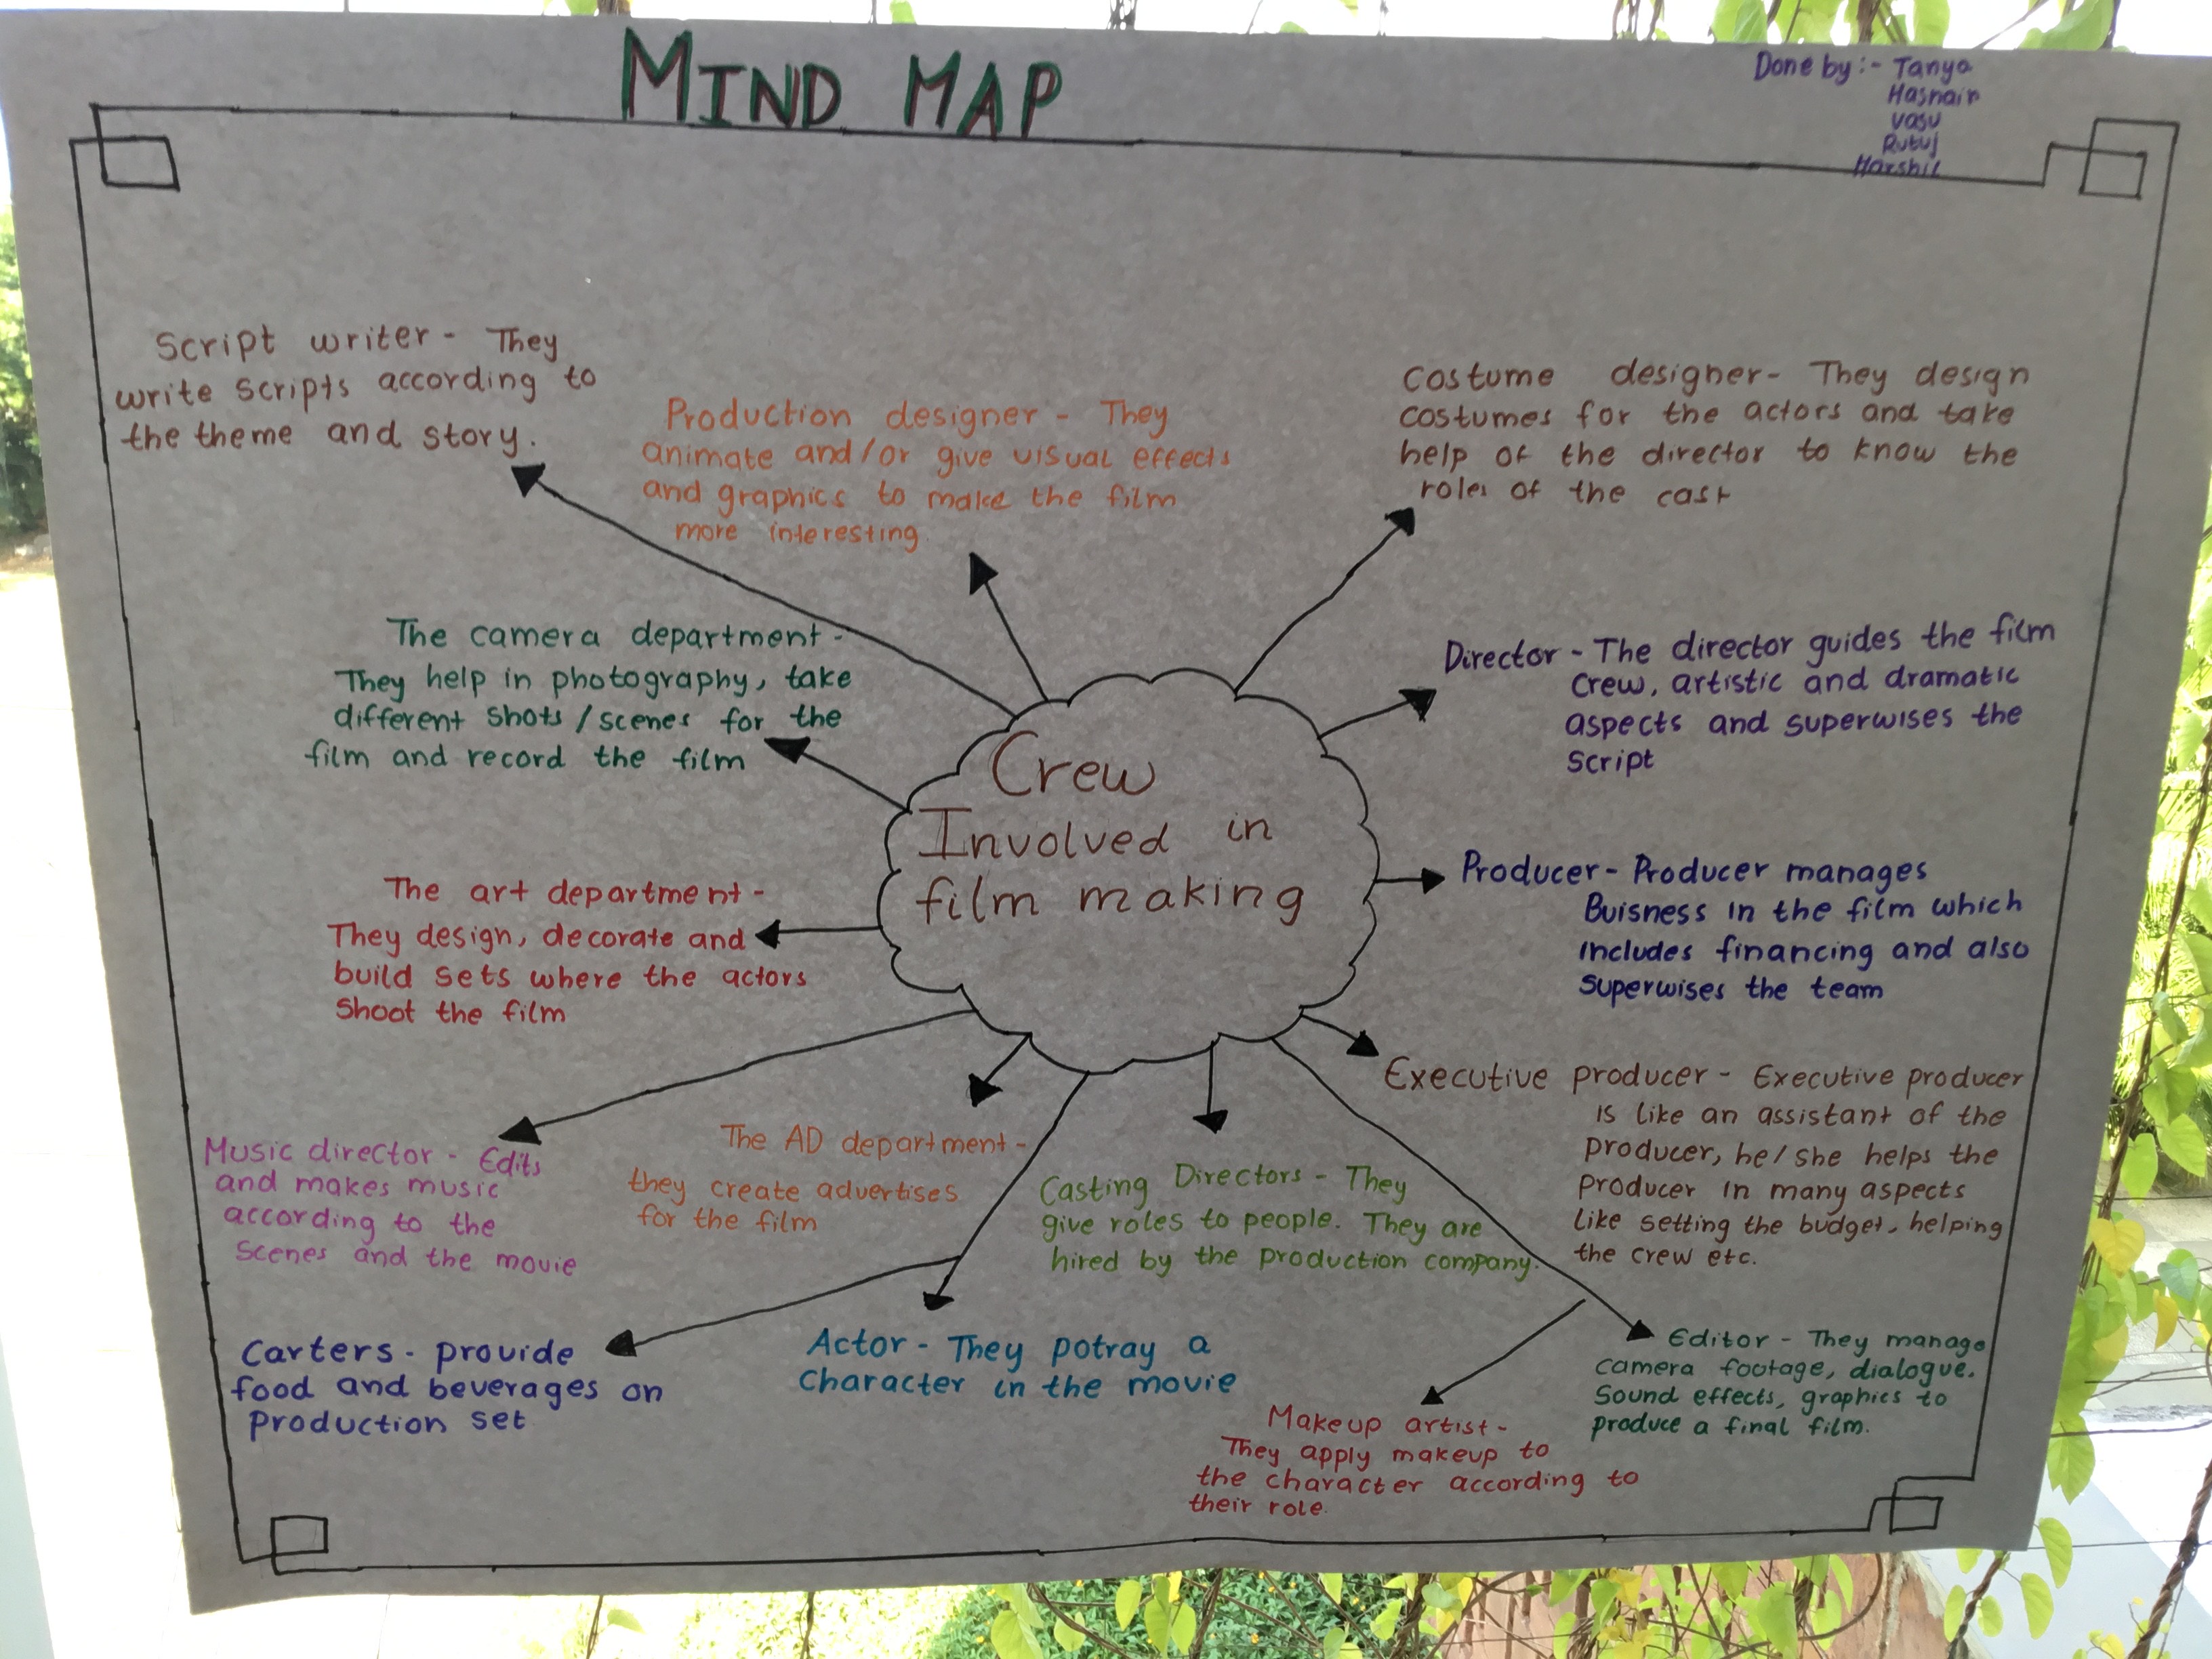 MIND MAP
Done by:- Tanya
Hasnain
Vasu
Rutuj
Harshil
Script writer - They
write scripts according to
the theme and story.
Production designer - They
animate and/or give visual effects
and graphics to make the film
more interesting.
Costume designer- They design
costumes for the actors and take
help of the director to know the
roles of the cast
The camera department -
They help in photography, take
different shots/scenes for the
film and record the film
Director - The director guides the film
crew, artistic and dramatic
aspects and superwises the
script
Crew
Involved in
film making
Producer - Producer manages
Buisness in the film which
includes financing and also
superwises the team
The art department -
They design, decorate and
build sets where the actors
shoot the film
Executive producer - Executive producer
is like an assistant of the
producer, he/she helps the
producer in many aspects
like setting the budget, helping
the crew etc.
Music director - Edits
and makes music
according to the
scenes and the movie
The AD department -
they create advertises
for the film
Casting Directors - They
give roles to people. They are
hired by the production company.
Carters - provide
food and beverages on
production set
Actor - They potray a
character in the movie
Editor - They manage
camera footage, dialogue,
sound effects, graphics to
produce a final film.
Makeup artist -
They apply makeup to
the character according to
their role.